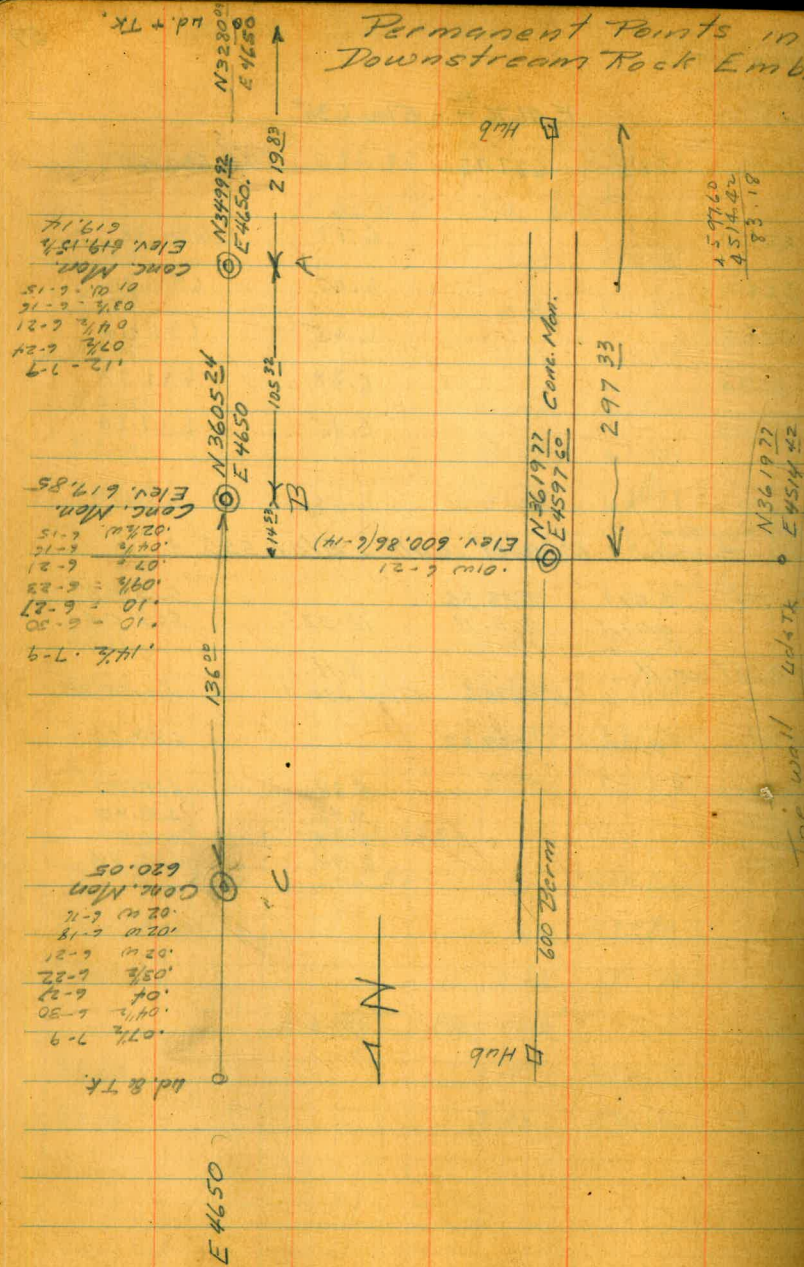 Permanent Points in
Downstream Rock Emb
Hd. & Tk.
N3280.09
E 4650
219.83
N3499.92
E 4650.
A
Conc. Mon.
Elev. 619.15½
619.14
.01 W. 6-15
03½ - 6-16
04½ 6-21
07½ 6-24
.12 - 7-9
105.32
N 3605.24
E 4650
B
14.53
Conc. Mon.
Elev. 619.85
.02½ W. 6-15
.04½ 6-16
.07 = 6-21
.09½ = 6-23
.10 = 6-27
.10 - 6-30
.14½ - 7-9
136.00
C
Conc. Mon
620.05
.02 W 6-16
.02 W 6-18
.02 W 6-21
.03½ 6-22
.04 6-27
.04½ 6-30
.07½ 7-9
Hd. & Tk.
E 4650
N
Hub
Conc. Mon.
N3619.77
E4597.60
Elev. 600.86 (6-14)
.01W 6-21
297.33
600 Berm
Hub
4597.60
4514.42
83.18
N3619.77
E4514.42
Hd & Tk
wall